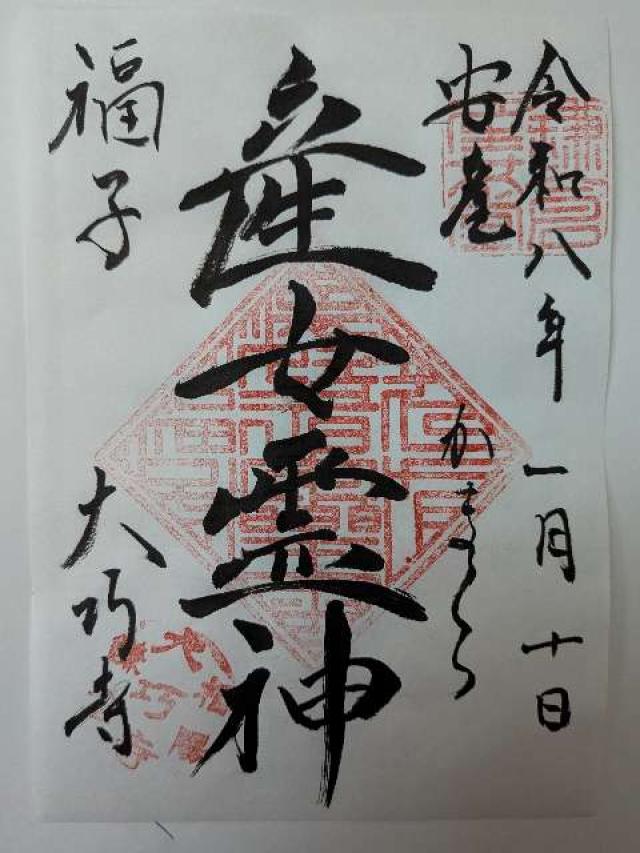 令和八年一月十日
安産
かまくら
産女霊神
福子
大巧寺